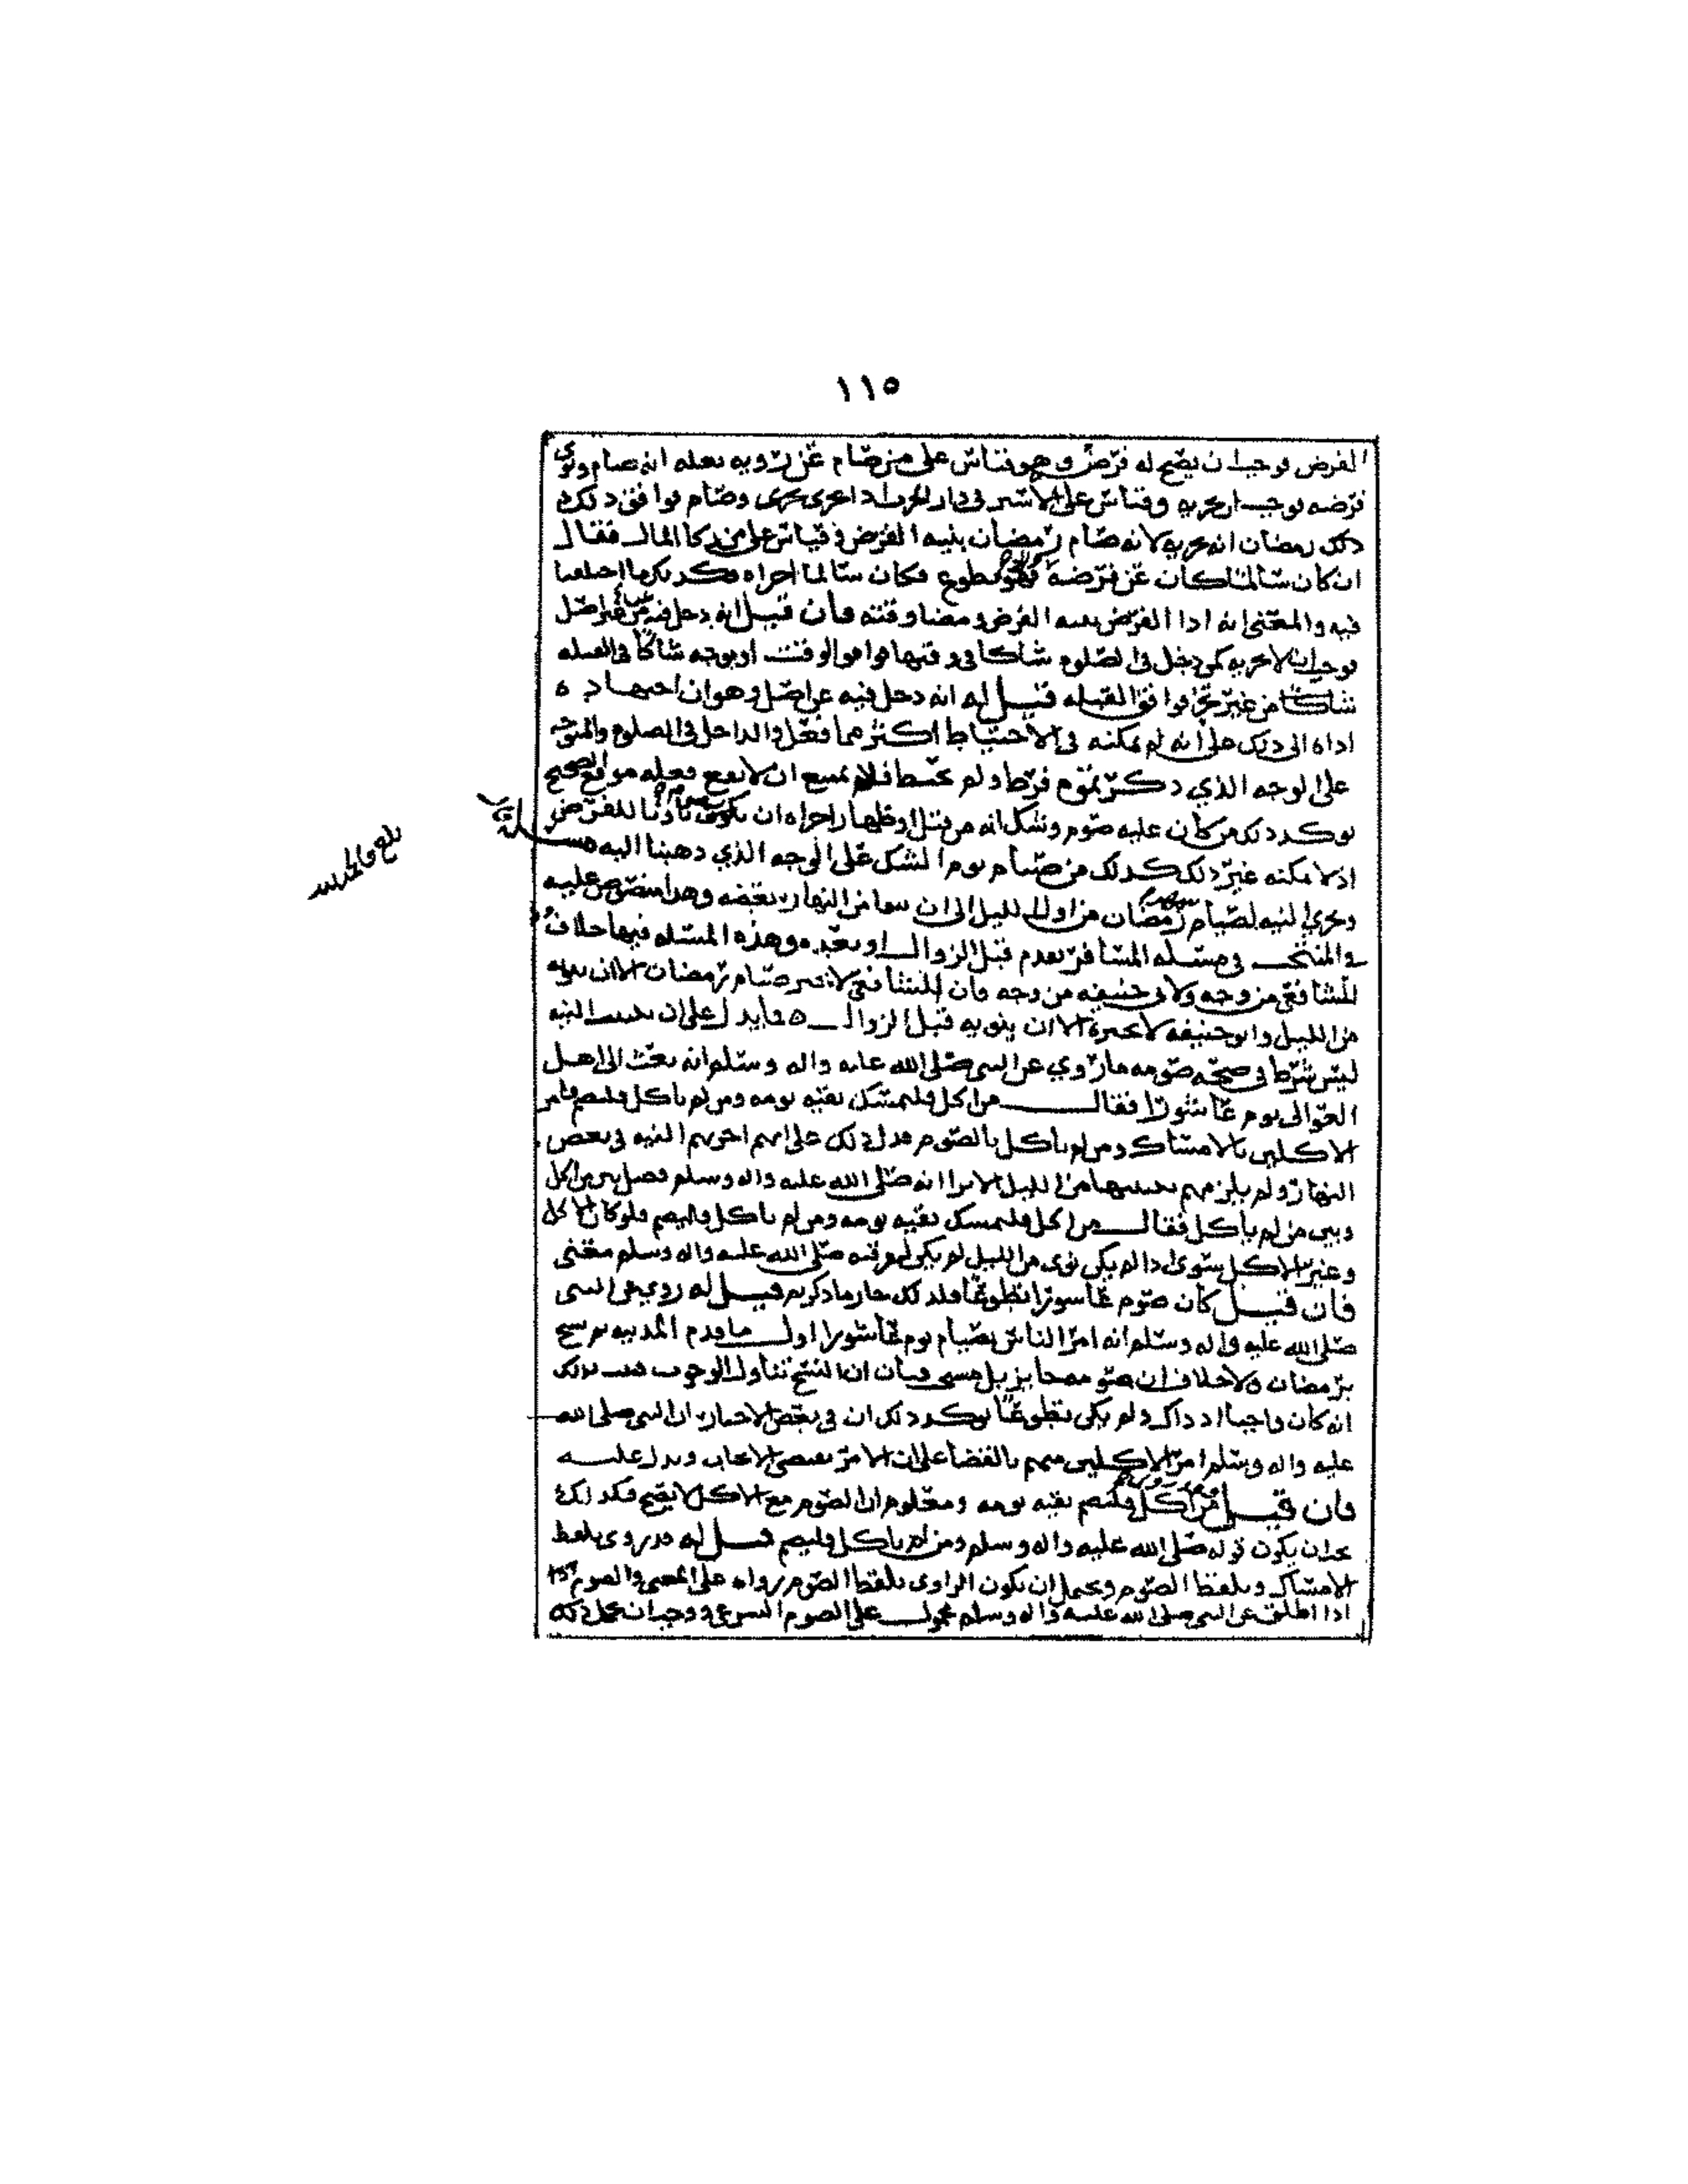 ١١٥
الفرض فوجب ان يصح له فرضه وهو قياس على من صام عن رويه بعله انه صام ونوى
فرضه فوجب ان يجزيه وقياس على الاسير في دار الحرب اذا تحرى وصام فوافق ذلك
ذلك رمضان انه يجزيه لانه صام رمضان بنيه الفرض وقياس على من زكا المال فقال
ان كان سالما كان عن فرضه فهو تطوع فكان سالما اجزاه
فيه والمعنى انه ادا الفرض بنيه الفرض ومضا وقته فان قيل انه دخل فيه من غير اصل
فوجب ان لا يجزيه كمن دخل في الصلوه شاكا في وقتها فوافق الوقت او توجه شاكا في القبله
شاكا من غير تحر فوافق القبله قيل له انه دخل فيه عن اصل وهو ان اجتهاده
اداه الى ذلك على انه لم يمكنه في الاحتياط اكثر مما فعل والداخل في الصلوه والمتوجه
على الوجه الذي ذكرتموه فرط ولم يحتط فلم يمتنع ان لا يقع فعله موقع الصحيح
يوكد ذلك من كان عليه صوم وشك انه من قتل او ظهار اجزاه ان يكون ناويا للفرض
اذ لا يمكنه غير ذلك كذلك من صام يوم الشك على الوجه الذي ذهبنا اليه مسله
ويجزي النيه لصيام رمضان من اول الليل الى ان يبقا من النهار بعضه وهذا منصوص عليه
في المنتخب في مسله المسافر يقدم قبل الزوال او بعده وهذه المسله فيها خلاف
للشافعي من وجه ولابي حنيفه من وجه فان الشافعي لا يجيز صيام رمضان الا ان ينويه
من الليل وابو حنيفه لا يجيزه الا ان ينويه قبل الزوال ه فما يدل على ان تبييت النيه
ليس شرط في صحه صومه ما روي عن النبي صلى الله عليه واله وسلم انه بعث الى اهل
العوالي يوم عاشورا فقال من اكل فليمسك بقيه يومه ومن لم ياكل فليصم فامر
الاكلين بالامساك ومن لم ياكل بالصوم فدل ذلك على انهم اجزتهم النيه في بعض
النهار ولم يلزمهم تبييتها من الليل الا ترا انه صلى الله عليه واله وسلم فصل بين من اكل
وبين من لم ياكل فقال من اكل فليمسك بقيه يومه ومن لم ياكل فليصم فلو كان الاكل
وغير الاكل سوى اذا لم يكن نوى من الليل لم يكن لفرقته صلى الله عليه واله وسلم معنى
فان قيل كان صوم عاشورا تطوعا فلذلك جاز ما ذكرتم قيل له روي عن النبي
صلى الله عليه واله وسلم انه امر الناس بصيام يوم عاشورا اول ما قدم المدينه ثم نسخ
برمضان ولا خلاف ان صومه
انه كان واجبا اذ ذاك ولم يكن تطوعا يوكد ذلك ان في بعض الاخبار ان النبي صلى الله
عليه واله وسلم امر الاكلين منهم بالقضا على ان الامر يقتضي الايجاب ويدل عليه
فان قيل من اكل فليصم بقيه يومه ومعلوم ان الصوم مع الاكل لا يصح فكذلك
يجب ان يكون قوله صلى الله عليه واله وسلم ومن لم ياكل فليصم قيل له قد روي بلفظ
الامساك وبلفظ الصوم ويحتمل ان يكون الراوي بلفظ الصوم رواه على المعنى والصوم
اذا اطلق عن النبي صلى الله عليه واله وسلم محمول على الصوم الشرعي ووجب ان يحمل ذلك